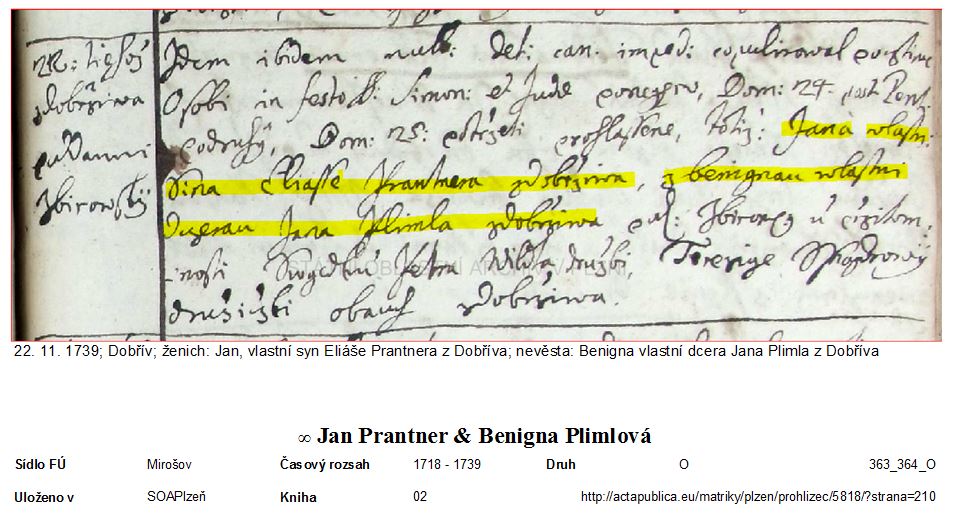 22: teghož
z dobržiwa
pul Panni
Zbirowský
Idem ibidem null: det: can: imped: copuliroval poctiwe
Osobi in festo SS: Simon: et Jude ponegprv, Dom: 24. post Pent:
podruhý, Dom: 25: potrzeti prohlassene, totiž: Jana wlastn:
Sina Eliasse Prantnera z dobržiwa, z benignau wlastni
Dcerau Jana Plimla z dobržiwa
nosti Swogedku Petra družbi, Terezige
družički obauch z dobržiwa.
STÁTNÍ OBLASTNÍ ARCHIV
22. 11. 1739; Dobřív; ženich: Jan, vlastní syn Eliáše Prantnera z Dobříva; nevěsta: Benigna vlastní dcera Jana Plimla z Dobříva
∞ Jan Prantner & Benigna Plimlová
Sídlo FÚ Mirošov Časový rozsah 1718 - 1739 Druh O 363_364_O
Uloženo v SOAPlzeň Kniha 02 http://actapublica.eu/matriky/plzen/prohlizec/5818/?strana=210